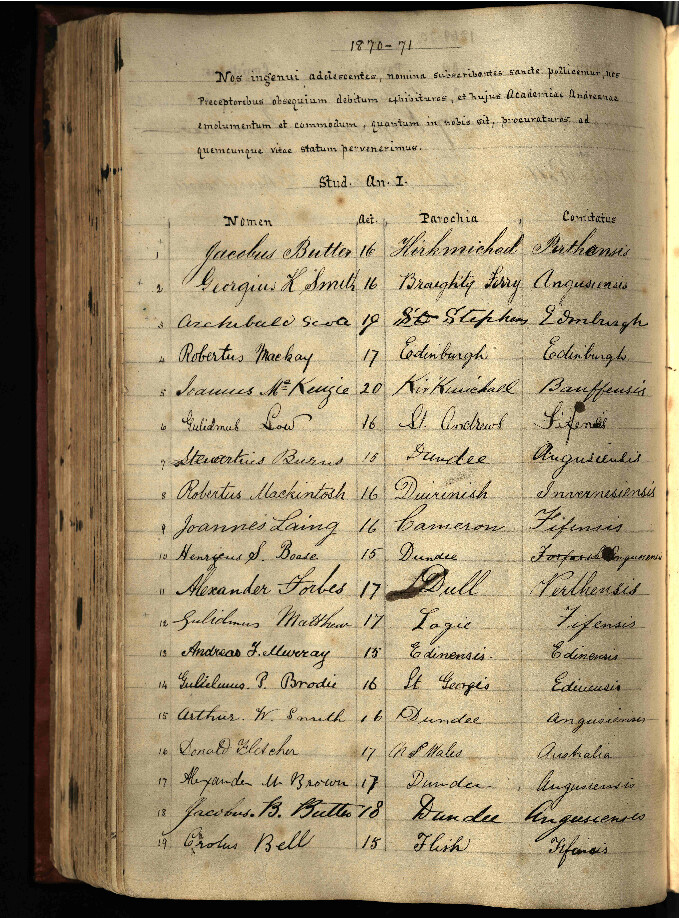 1870-71
Nos ingenui adolescentes, nomina subscribentes sancte pollicemur, nos
Preceptoribus obsequium debitum exhibituros, et hujus Academiae Andreanae
emolumentum et commodum, quantum in nobis sit, procuraturos ad
quemcunque vitae statum pervenerimus.
Stud. An. I.
Nomen Aet. Parochia Comitatus
1 Jacobus Butter 16 Kirkmichael Perthensis
2 Georgius H Smith 16 Braughty Ferry Angusiensis
3 Archibald Scott St Stephens Edinburgh
4 Robertus Mackay 17 Edinburgh Edinburgh
5 Joannus McKenzie 20 Kirkmichael Banffensis
6 Gulielmus Low 16 St. Andrews Fifensis
7 Stewartius Burns 15 Dundee Angusiensis
8 Robertus Mackintosh 16 Duirinish Invernesiensis
9 Joannes Laing 16 Cameron Fifensis
10 Henryus S. Boase 15 Dundee Angusiensis
11 Alexander Forbes 17 Dull Perthensis
12 Gulielmus Matthew 17 Logie Fifensis
13 Andreas F. Murray 15 Edinensis Edinensis
14 Gulielmus P. Brodie 16 St Georges Edinensis
15 Arthur W. Smith 16 Dundee Angusiensis
16 Donald Fletcher 17 N S Wales Australia
17 Alexander M Brown 17 Dundee Angusiensis
18 Jacobus B. Butter 18 Dundee Angusiensis
19 Carolus Bell 15 Flisk Fifensis